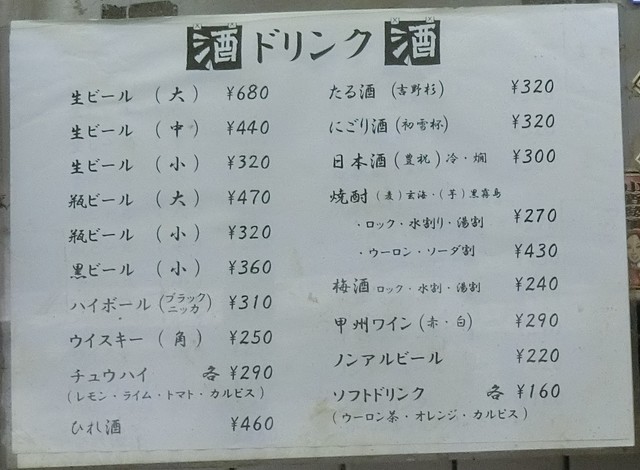 酒 ドリンク 酒
生ビール （大） ¥680
生ビール （中） ¥440
生ビール （小） ¥320
瓶ビール （大） ¥470
瓶ビール （小） ¥320
黒ビール （小） ¥360
ハイボール（ブラックニッカ） ¥310
ウイスキー （角） ¥250
チュウハイ 各 ¥290
（レモン・ライム・トマト・カルピス）
ひれ酒 ¥460
たる酒 （吉野杉） ¥320
にごり酒（初雪杯） ¥320
日本酒（豊祝）冷・燗 ¥300
焼酎 （麦）玄海・（芋）黒霧島
・ロック・水割り・湯割 ¥270
・ウーロン・ソーダ割 ¥430
梅酒 ロック・水割・湯割 ¥240
甲州ワイン（赤・白） ¥290
ノンアルビール ¥220
ソフトドリンク 各 ¥160
（ウーロン茶・オレンジ・カルピス）